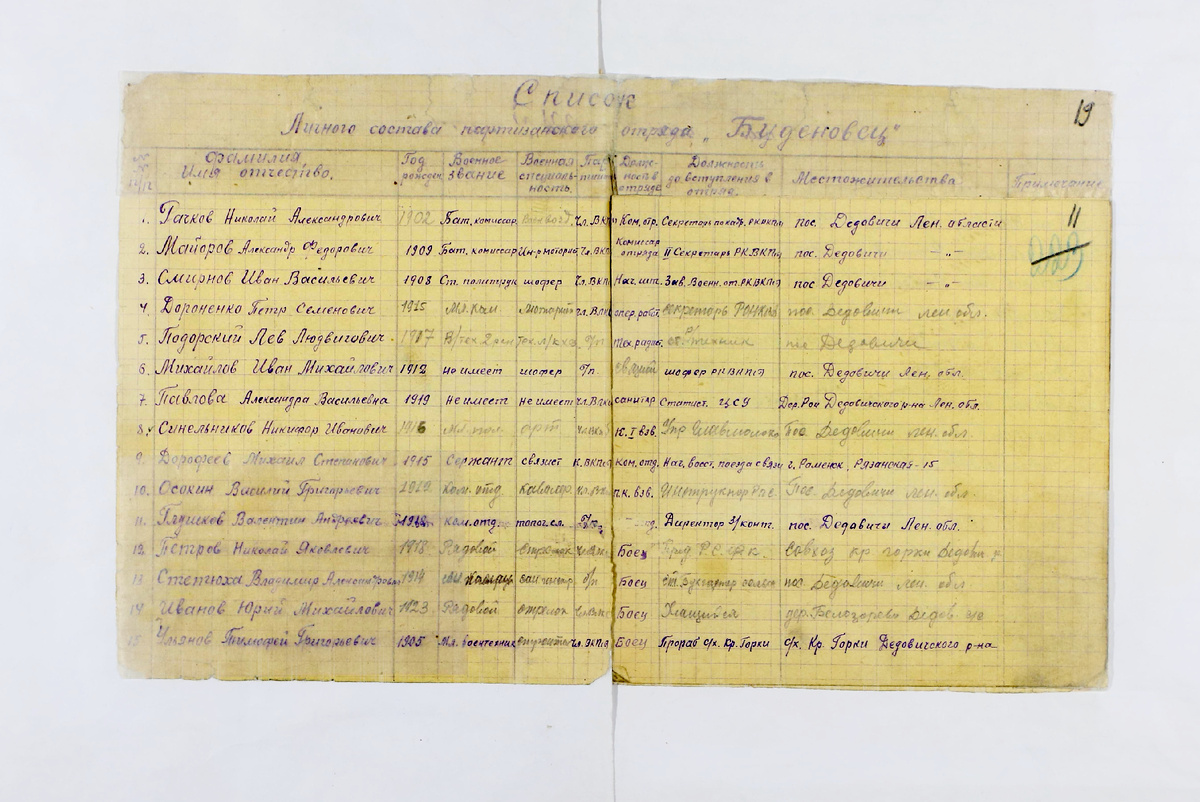 Список
19
Личного состава партизанского отряда „Буденовец"
№ п/п Фамилия, Имя отчество. Год рожден Военное звание Военная специаль-ность. Пар-тийн Долж-ность в отряде Должность до вступления в отряд. Местожительства Примечание
11
1. Рачков Николай Александрович 1902 Бат. комиссар Чл. ВКП Ком. отр. Секретарь РК ВКПб пос. Дедовичи Лен. области
2. Майоров Александр Федорович 1909 Бат. комиссар Ин-р моторис Чл. ВКП Комиссар отряда II Секретарь РК ВКПб пос. Дедовичи — „ —
3. Смирнов Иван Васильевич 1908 Ст. политрук шофер Чл. ВКПб Нач. шт. Зав. Военн. от. РК. ВКПб пос Дедовичи — „ —
4. Дороненко Петр Семенович 1915 Мл. ком Чл. ВКП опер. работ. секретарь пос. Дедовичи Лен. обл.
5. Подорский Лев Людвигович 1907 В/тех. 2 ран б/п Тех. радио. ст. техник пос Дедовичи
6. Михайлов Иван Михайлович 1912 не имеет шофер б/п. шофер РК ВКПб пос. Дедовичи Лен. обл.
7. Павлова Александра Васильевна 1919 не имеет не имеет Чл. ВКПб санитар Статист. ЦСУ Дер. Рои Дедовичского р-на Лен. обл.
8. Синельников Никифор Иванович 1916 Мл. арт Чл. ВКПб К. I взв. Пос. Дедовичи Лен. обл.
9. Дорофеев Михаил Степанович 1915 Сержант связист К. ВКПб Ком. отд. Нач. восст. поезда связи г. Раменск, Рязанская-15
10. Осокин Василий Григорьевич 1912 Ком. отд. кавалер. Чл. ВКП п.к. взв. Инструктор Пос. Дедовичи Лен. обл.
11. Глушков Валентин Андреевич 1912 ком. отд. топог. сл. б/п Директор з/конт. пос. Дедовичи Лен. обл.
12. Петров Николай Яковлевич 1918 Рядовой стрелок Чл. ВКП Боец совхоз кр горки Дедович р
13 Степюха Владимир Алексан 1914 б/п Боец ст. Бухгалтер пос. Дедовичи Лен. обл
14 Иванов Юрий Михайлович 1923 Рядовой стрелок Чл. Боец Учащийся дер. Белозерево Дедов. р-о
15 Ульянов Тимофей Григорьевич 1905 Мл. воентехник строитель Чл. ВКП.б Боец Прораб с/х. Кр. Горки с/х. Кр. Горки Дедовичского р-на